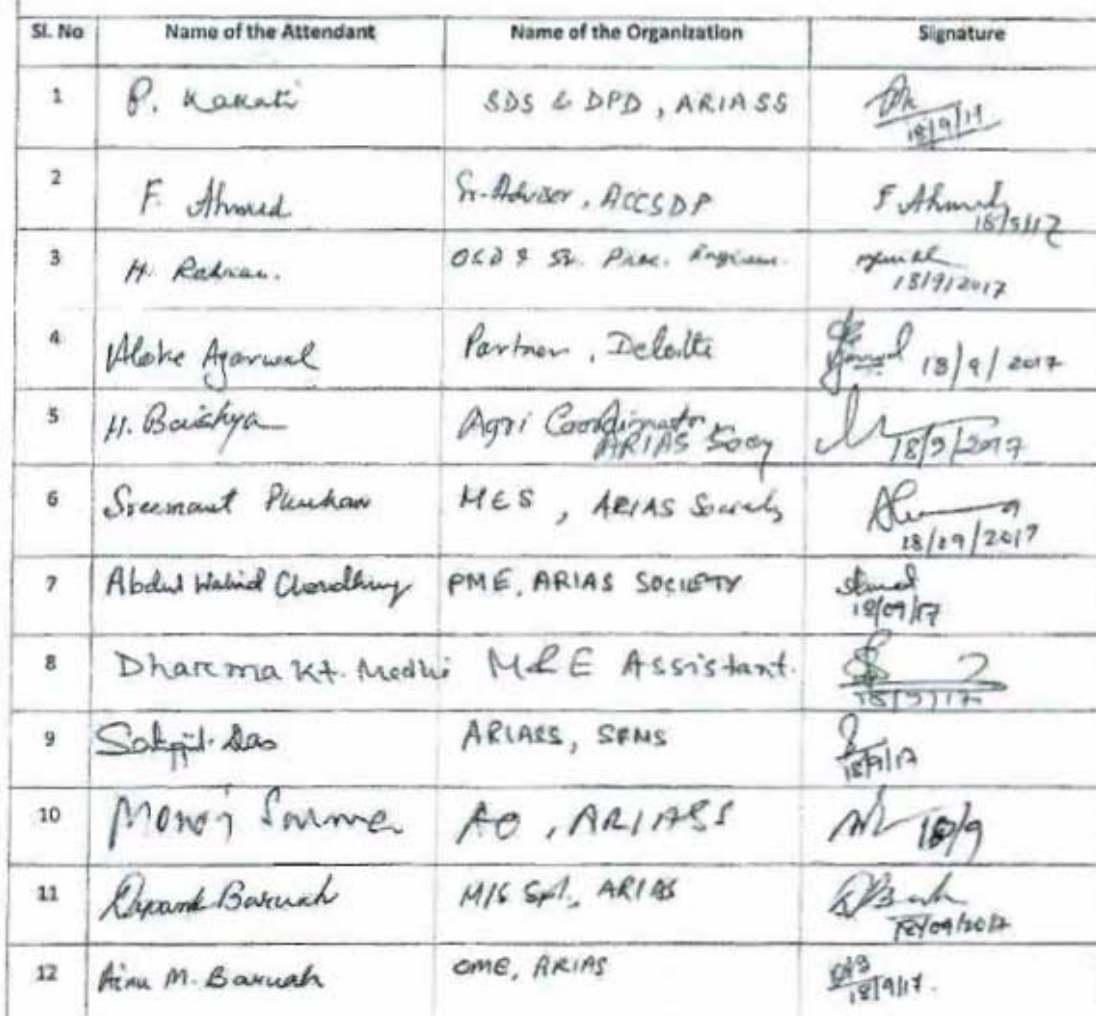 Sl. No Name of the Attendant Name of the Organization Signature
1 P. Kakati SDS & DPD, ARIASS 18/9/17
2 F. Ahmed Sr. Adviser, ACCSDP F Ahmed 18/9/17
3 H. Rahman. OSD & Sr. Proc. Engineer. 18/9/2017
4 Aloke Agarwal Partner, Deloitte 18/9/2017
5 H. Baishya Agri Coordinator, ARIAS Socy 18/9/2017
6 Sreemant Phukan MES, ARIAS Society 18/09/2017
7 Abdul Wahid Choudhury PME, ARIAS SOCIETY 18/09/17
8 Dharma Kt. Medhi M&E Assistant. 18/9/17
9 Satyajit Das ARIASS, SFMS 18/9/17
10 Monoj Sarma AO, ARIASS 18/9
11 Baruah M/S Spl., ARIAS 18/09/2017
12 Ainu M. Baruah OME, ARIAS 18/9/17.